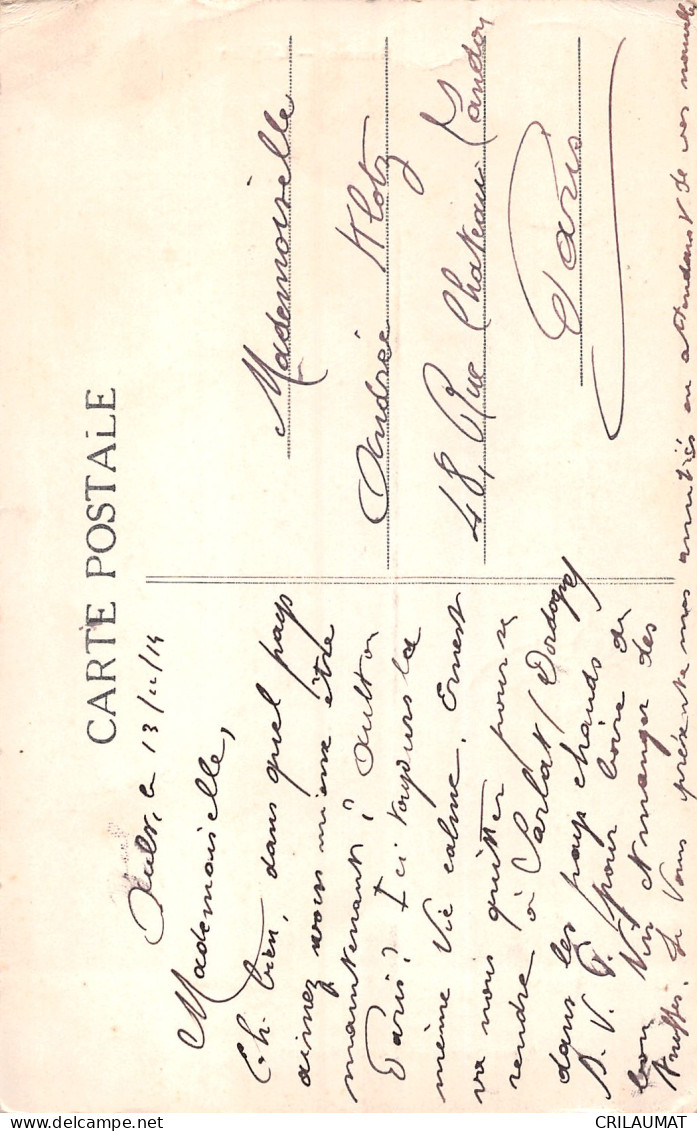 CARTE POSTALE
Ault, le 13/11/14
Mademoiselle,
Eh bien, dans quel pays
aimez vous mieux être
maintenant ? Ault ou
Paris ? Ici toujours la
même vie calme. Ernest
va nous quitter pour se
rendre à Sarlat (Dordogne)
dans les pays chauds
S. V. P. pour boire du
bon vin et manger des
truffes. Je vous présente mes amitiés en attendant de vos nouvelles
Mademoiselle
Andrée Klotz
48, Rue Chateau Landon
Paris
CRILAUMAT